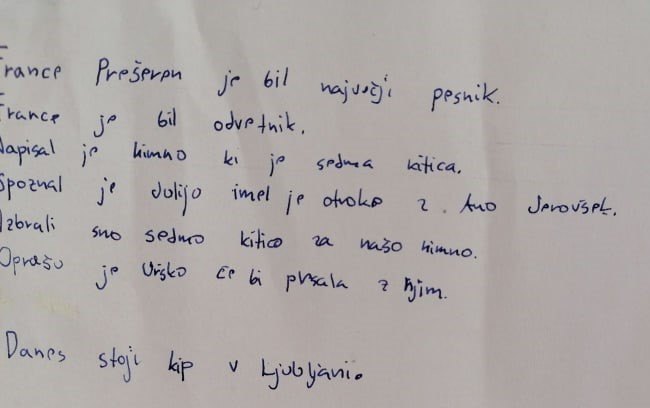 France Prešeren je bil največji pesnik.
France je bil odvetnik.
Napisal je himno ki je sedma kitica.
Spoznal je Julijo imel je otroke z Ano Jerovšek.
Izbrali smo sedmo kitico za našo himno.
Oprašu je Urško če bi plesala z njim.
Danes stoji kip v Ljubljani.